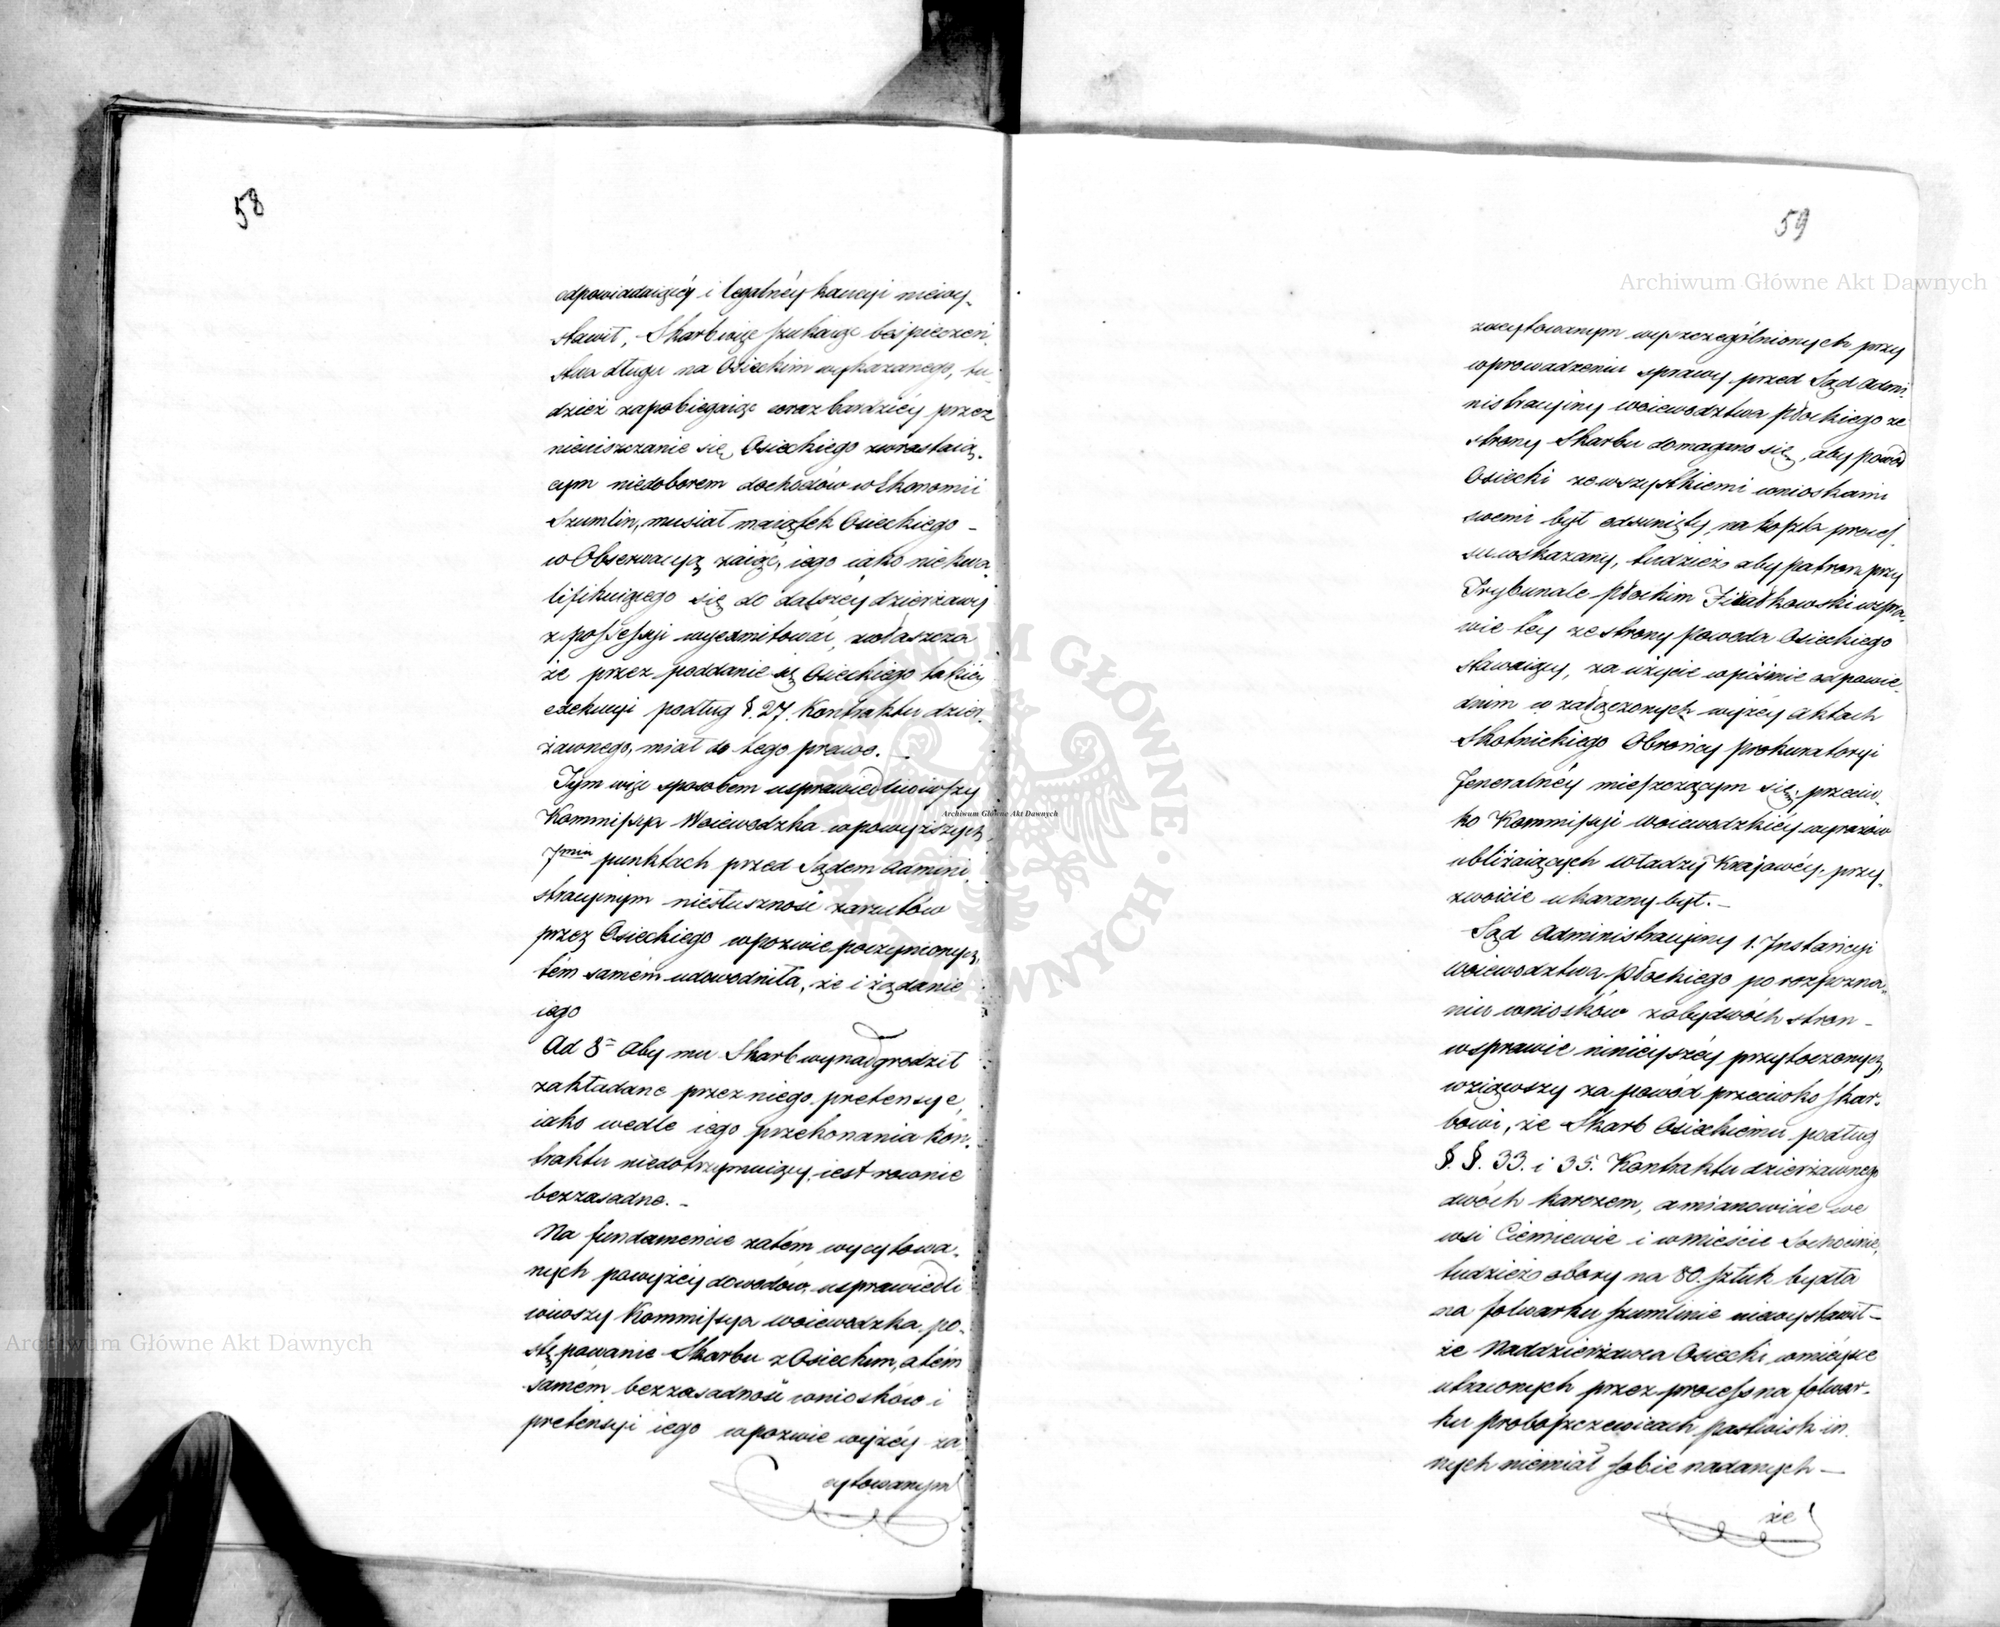 58
odpowiadaiącéy i legalnéy kaucyi niewy-
stawił, Skarb więc szukaiąc bespieczeń-
stwa długu na Osieckim wykazanego, tu-
dzież zapobiegaiąc coraz bardziéy przez
nieuiszczanie się Osieckiego wzrastaią-
cym niedoborem dochodów w Ekonomii
Szumlin, musiał maiątek Osieckiego -
w Obserwacyą zaiąć, iego iako niekwa-
lifikuiącego się do dalszéy dzierżawy
z possessyi wyexmitować, zwłaszcza
że przez poddanie się Osieckiego takiéy
exekucyi podług §. 27. Kontraktu dzier-
żawnego, miał do tego prawo. -
Tym więc sposobem usprawiedliwiwszy
Kommissya Woiewodzka w powyższych
7miu punktach przed Sądem Admini-
stracyinym niesłuszność zarzutów
przez Osieckiego w pozwie poczynionych,
tém samém udowodniła, że i żądanie
iego
Ad 8= Aby mu Skarb wynadgrodził
zakładane przez niego pretensye,
iako wedle iego przekonania kon-
traktu niedotrzymuiący, iest rownie
bezzasadne. -
Na fundamencie zatém wycytowa-
nych powyżéy dowodów, usprawiedli
wiwszy Kommissya woiewodzka po-
stępowanie Skarbu z Osieckim, a tém
samém bezzasadność wniosków i
pretensyi iego w pozwie wyżéy za
cytowanym
59
zacytowanym wyszczególnionych przy
wprowadzeniu sprawy przed Sąd Admi-
nistracyiny woiewodztwa Płockiego ze
strony Skarbu domagano się, aby powód
Osiecki ze wszystkiemi wnioskami
swemi był odsunięty, na koszta proces-
su wskazany, tudzież aby patron przy
Trybunale Płockim Ziółkowski w spra-
wie téy ze strony Powoda Osieckiego
stawaiący, za użycie w piśmie odpowie-
dnim w załączonych wyżéy aktach
Skotnickiego Obrońcy Prokuratoryi
Jeneralnéy mieszczącym się, przeciw-
ko Kommissyi woiewodzkiéy wyrazów
ubliżaiących władzy Krajowéy, przy-
zwoicie ukarany był. -
Sąd Administracyiny 1. Instancyi
woiewodztwa Płockiego po rozpozna-
niu wniosków z obydwóch stron -
w sprawie ninieyszéy przytoczonych,
wziąwszy za powód przeciwko Skar-
bowi, że Skarb Osieckiemu podług
§. §. 33. i 35. Kontraktu dzierżawnego
dwóch karczem, a mianowicie we
wsi Cieniewie i w mieście Sochocinie,
tudzież obory na 80. sztuk bydła
na folwarku Szumlinie niewystawił -
że Naddzierżawca Osiecki w mieysce
utraconych przez process na folwar-
ku Proboszczewicach pastwisk in-
nych niemiał sobie nadanych -
że
Archiwum Główne Akt Dawnych
Archiwum Główne Akt Dawnych
Archiwum Główne Akt Dawnych